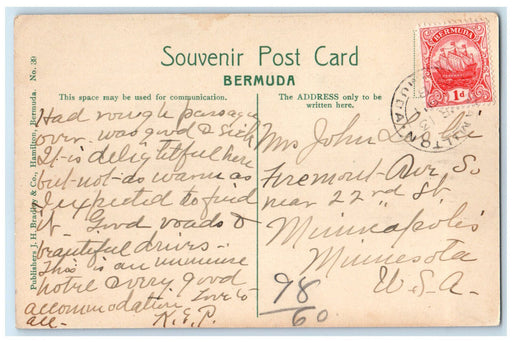 Souvenir Post Card
BERMUDA
This space may be used for communication.
The ADDRESS only to be
written here.
BERMUDA
1d
Publishers J. H. Bradley & Co., Hamilton, Bermuda. No. 39
Had rough passage
over. was good & sick
It is delightful here
but not as warm as
I expected to find
it. Good roads &
beautiful drives -
This is an immense
hotel very good
accommodation Love to
all- K.E.P.
Mrs John L.
Fremont Ave So
near 22nd St.
Minneapolis
Minnesota
U.S.A-
98
60